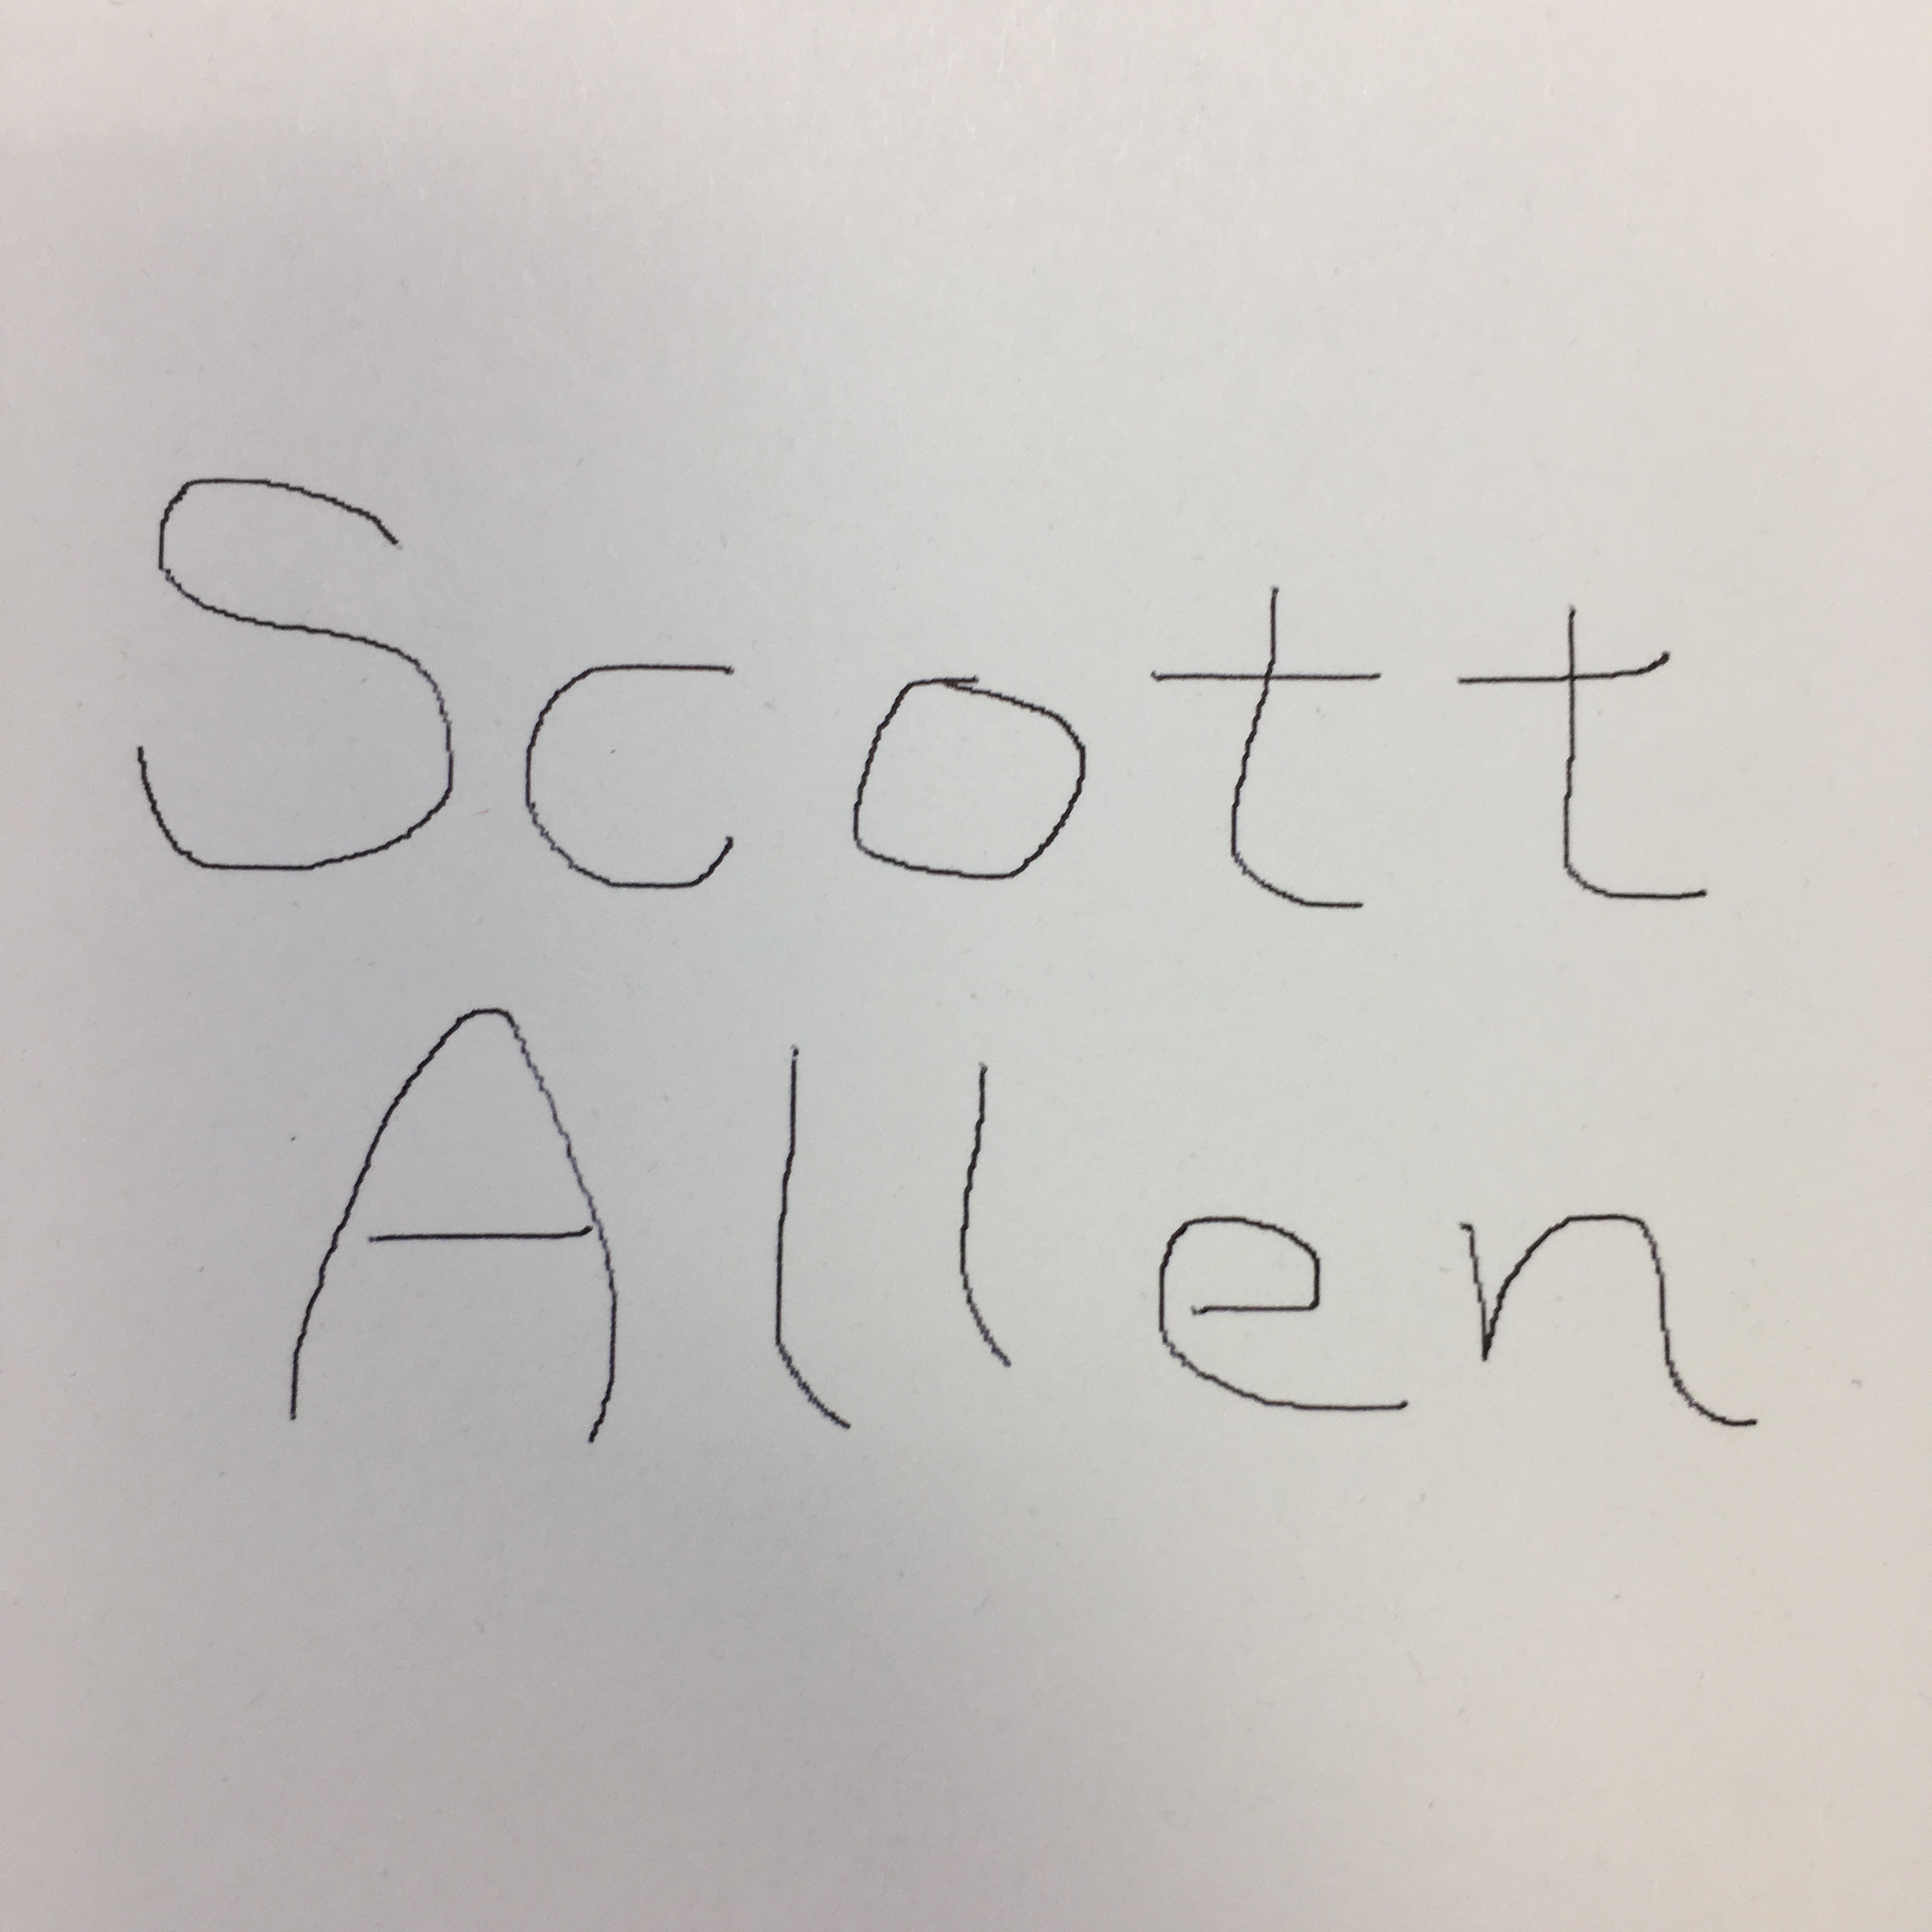 Scott
Allen